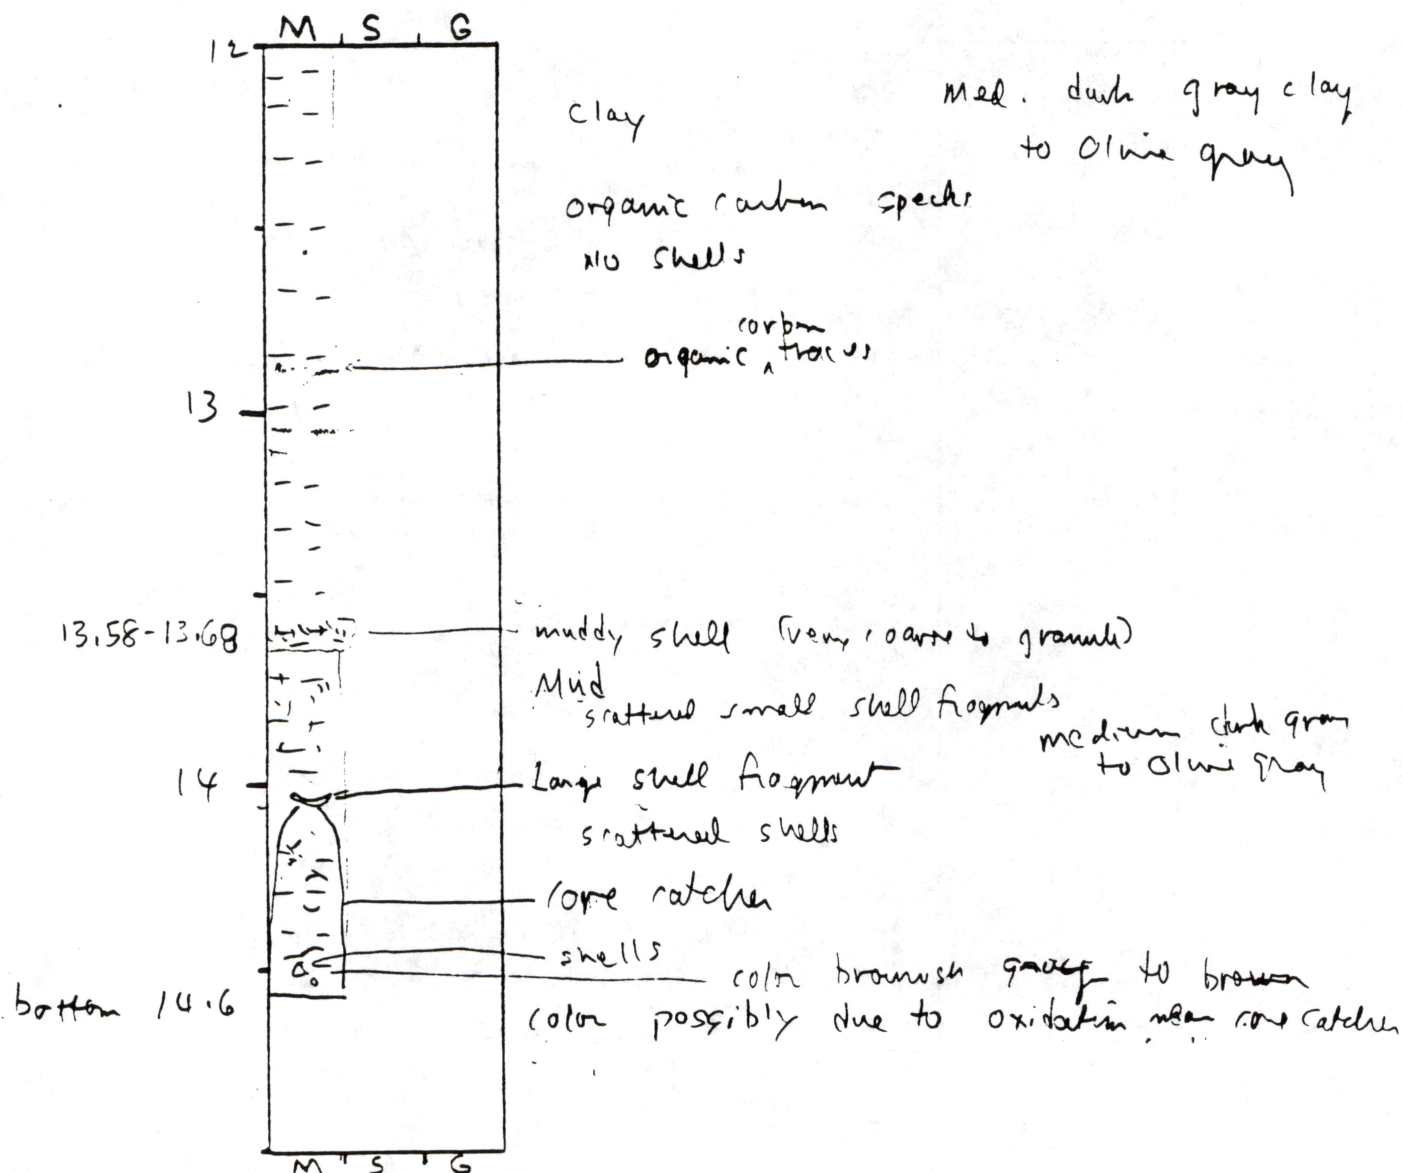 M S G
12
clay
med. dark gray clay
to Olive gray
organic carbon specks
No shells
carbon
organic ^ traces
13
13.58-13.68
muddy shell (very coarse to granule)
Mud
scattered small shell fragments
medium dark gray
to Olive gray
14
Large shell fragment
scattered shells
core catcher
shells
color brownish gray to brown
bottom 14.6
color possibly due to oxidation near core catcher
M S G